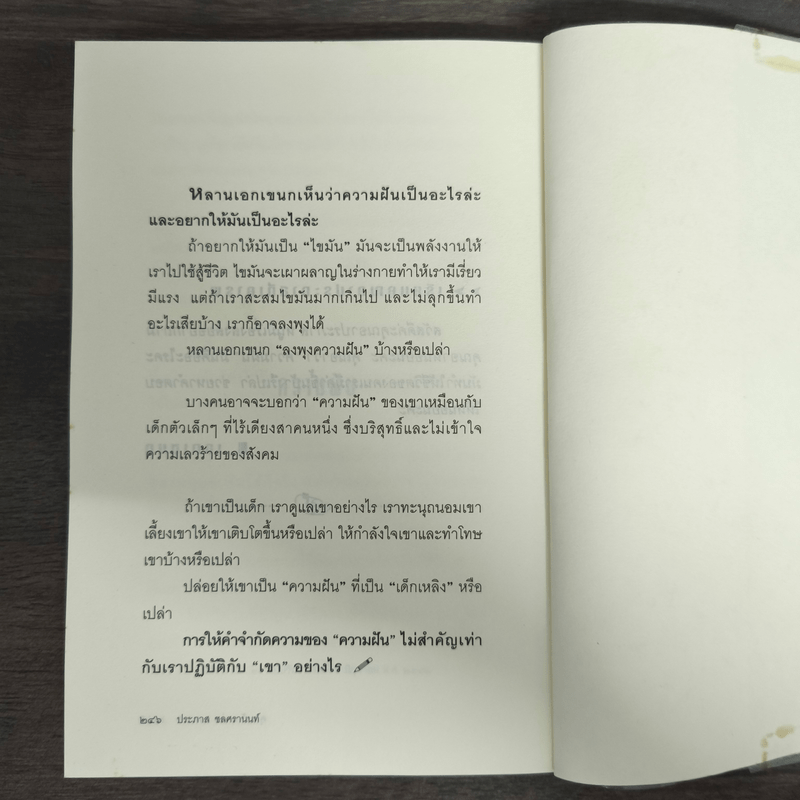 หลานเอกเขนกเห็นว่าความฝันเป็นอะไรล่ะ
และอยากให้มันเป็นอะไรล่ะ
ถ้าอยากให้มันเป็น “ไขมัน” มันจะเป็นพลังงานให้
เราไปใช้สู้ชีวิต ไขมันจะเผาผลาญในร่างกายทำให้เรามีเรี่ยว
มีแรง แต่ถ้าเราสะสมไขมันมากเกินไป และไม่ลุกขึ้นทำ
อะไรเสียบ้าง เราก็อาจลงพุงได้
หลานเอกเขนก “ลงพุงความฝัน” บ้างหรือเปล่า
บางคนอาจจะบอกว่า “ความฝัน” ของเขาเหมือนกับ
เด็กตัวเล็กๆ ที่ไร้เดียงสาคนหนึ่ง ซึ่งบริสุทธิ์และไม่เข้าใจ
ความเลวร้ายของสังคม
ถ้าเขาเป็นเด็ก เราดูแลเขาอย่างไร เราทะนุถนอมเขา
เลี้ยงเขาให้เขาเติบโตขึ้นหรือเปล่า ให้กำลังใจเขาและทำโทษ
เขาบ้างหรือเปล่า
ปล่อยให้เขาเป็น “ความฝัน” ที่เป็น “เด็กเหลิง” หรือ
เปล่า
การให้คำจำกัดความของ “ความฝัน” ไม่สำคัญเท่า
กับเราปฏิบัติกับ “เขา” อย่างไร
๒๔๖ ประภาส ชลศรานนท์